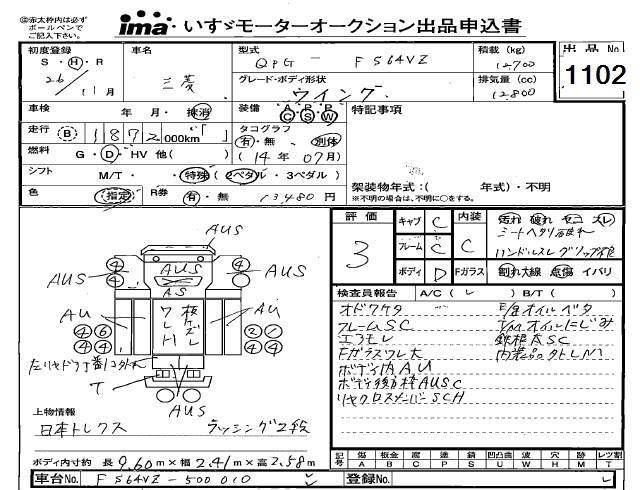 ㊟赤太枠内は必ず
ボールペンで
ご記入下さい。
ima いすゞモーターオークション出品申込書
初度登録 車名 型式 QPG - FS64VZ 積載 (kg) 12,700 出品No
S・H・R 26/11月 三菱 グレード・ボディ形状 ウイング 排気量 (cc) 12,800 1102
車検 年 月・抹消 装備 A/C P/S P/W 特記事項
走行 B 1872 000km タコグラフ 有・無 別体
燃料 G・D・HV 他( ) (14年07月)
シフト M/T・ 特殊 (2ペダル・3ペダル) 架装物年式:( 年式)・不明
色 指定 R券 有・無 13480円 ※不明の場合は、不明に○をする。
評価 キャブ C 内装 汚れ 破れ ヤニ スレ
3 フレーム C C シートヘタリ破れ
ハンドルスレグリップ不良
ボディ D Fガラス 割れ大線 点傷 イバリ
検査員報告 A/C( レ ) B/T( )
オドワケタ E/gオイルベタ
フレームSC T/Mオイルにじみ
エアモレ 鉄板大SC
Fガラスワレ大
ボディ内AU
ボディ後枠AUSC
リヤクロスメンバーSCH
AUS
④ AUS ④
AUS AS AUS
AU AU
T
AUS
上物情報
日本トレクス ラッシング2段
ボディ内寸約 長9.60m×幅2.41m×高2.58m
記号 傷 A 板金 B 腐 C 塗 P 錆 S 凹凸曲 U 波 W 穴 H 跡 M レツ割 T
車台No. FS64VZ-500010 登録No.